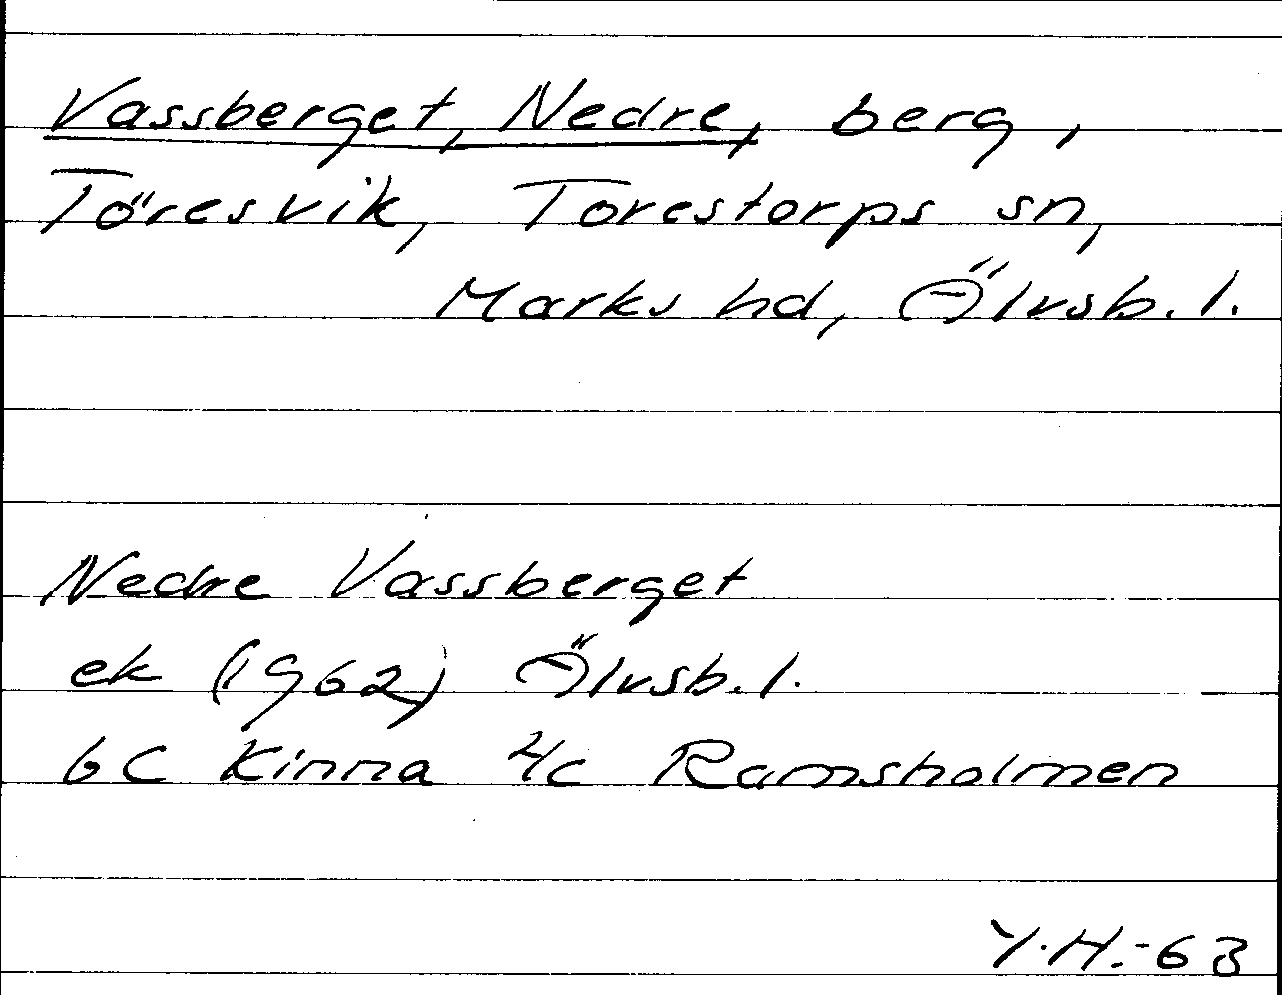 Vassberget, Nedre, berg,
Töresvik, Torestorps sn,
Marks hd, Älvsb. l.
Nedre Vassberget
ek (1962) Älvsb. l.
6C Kinna 4c Ramsholmen
Y.H.-63